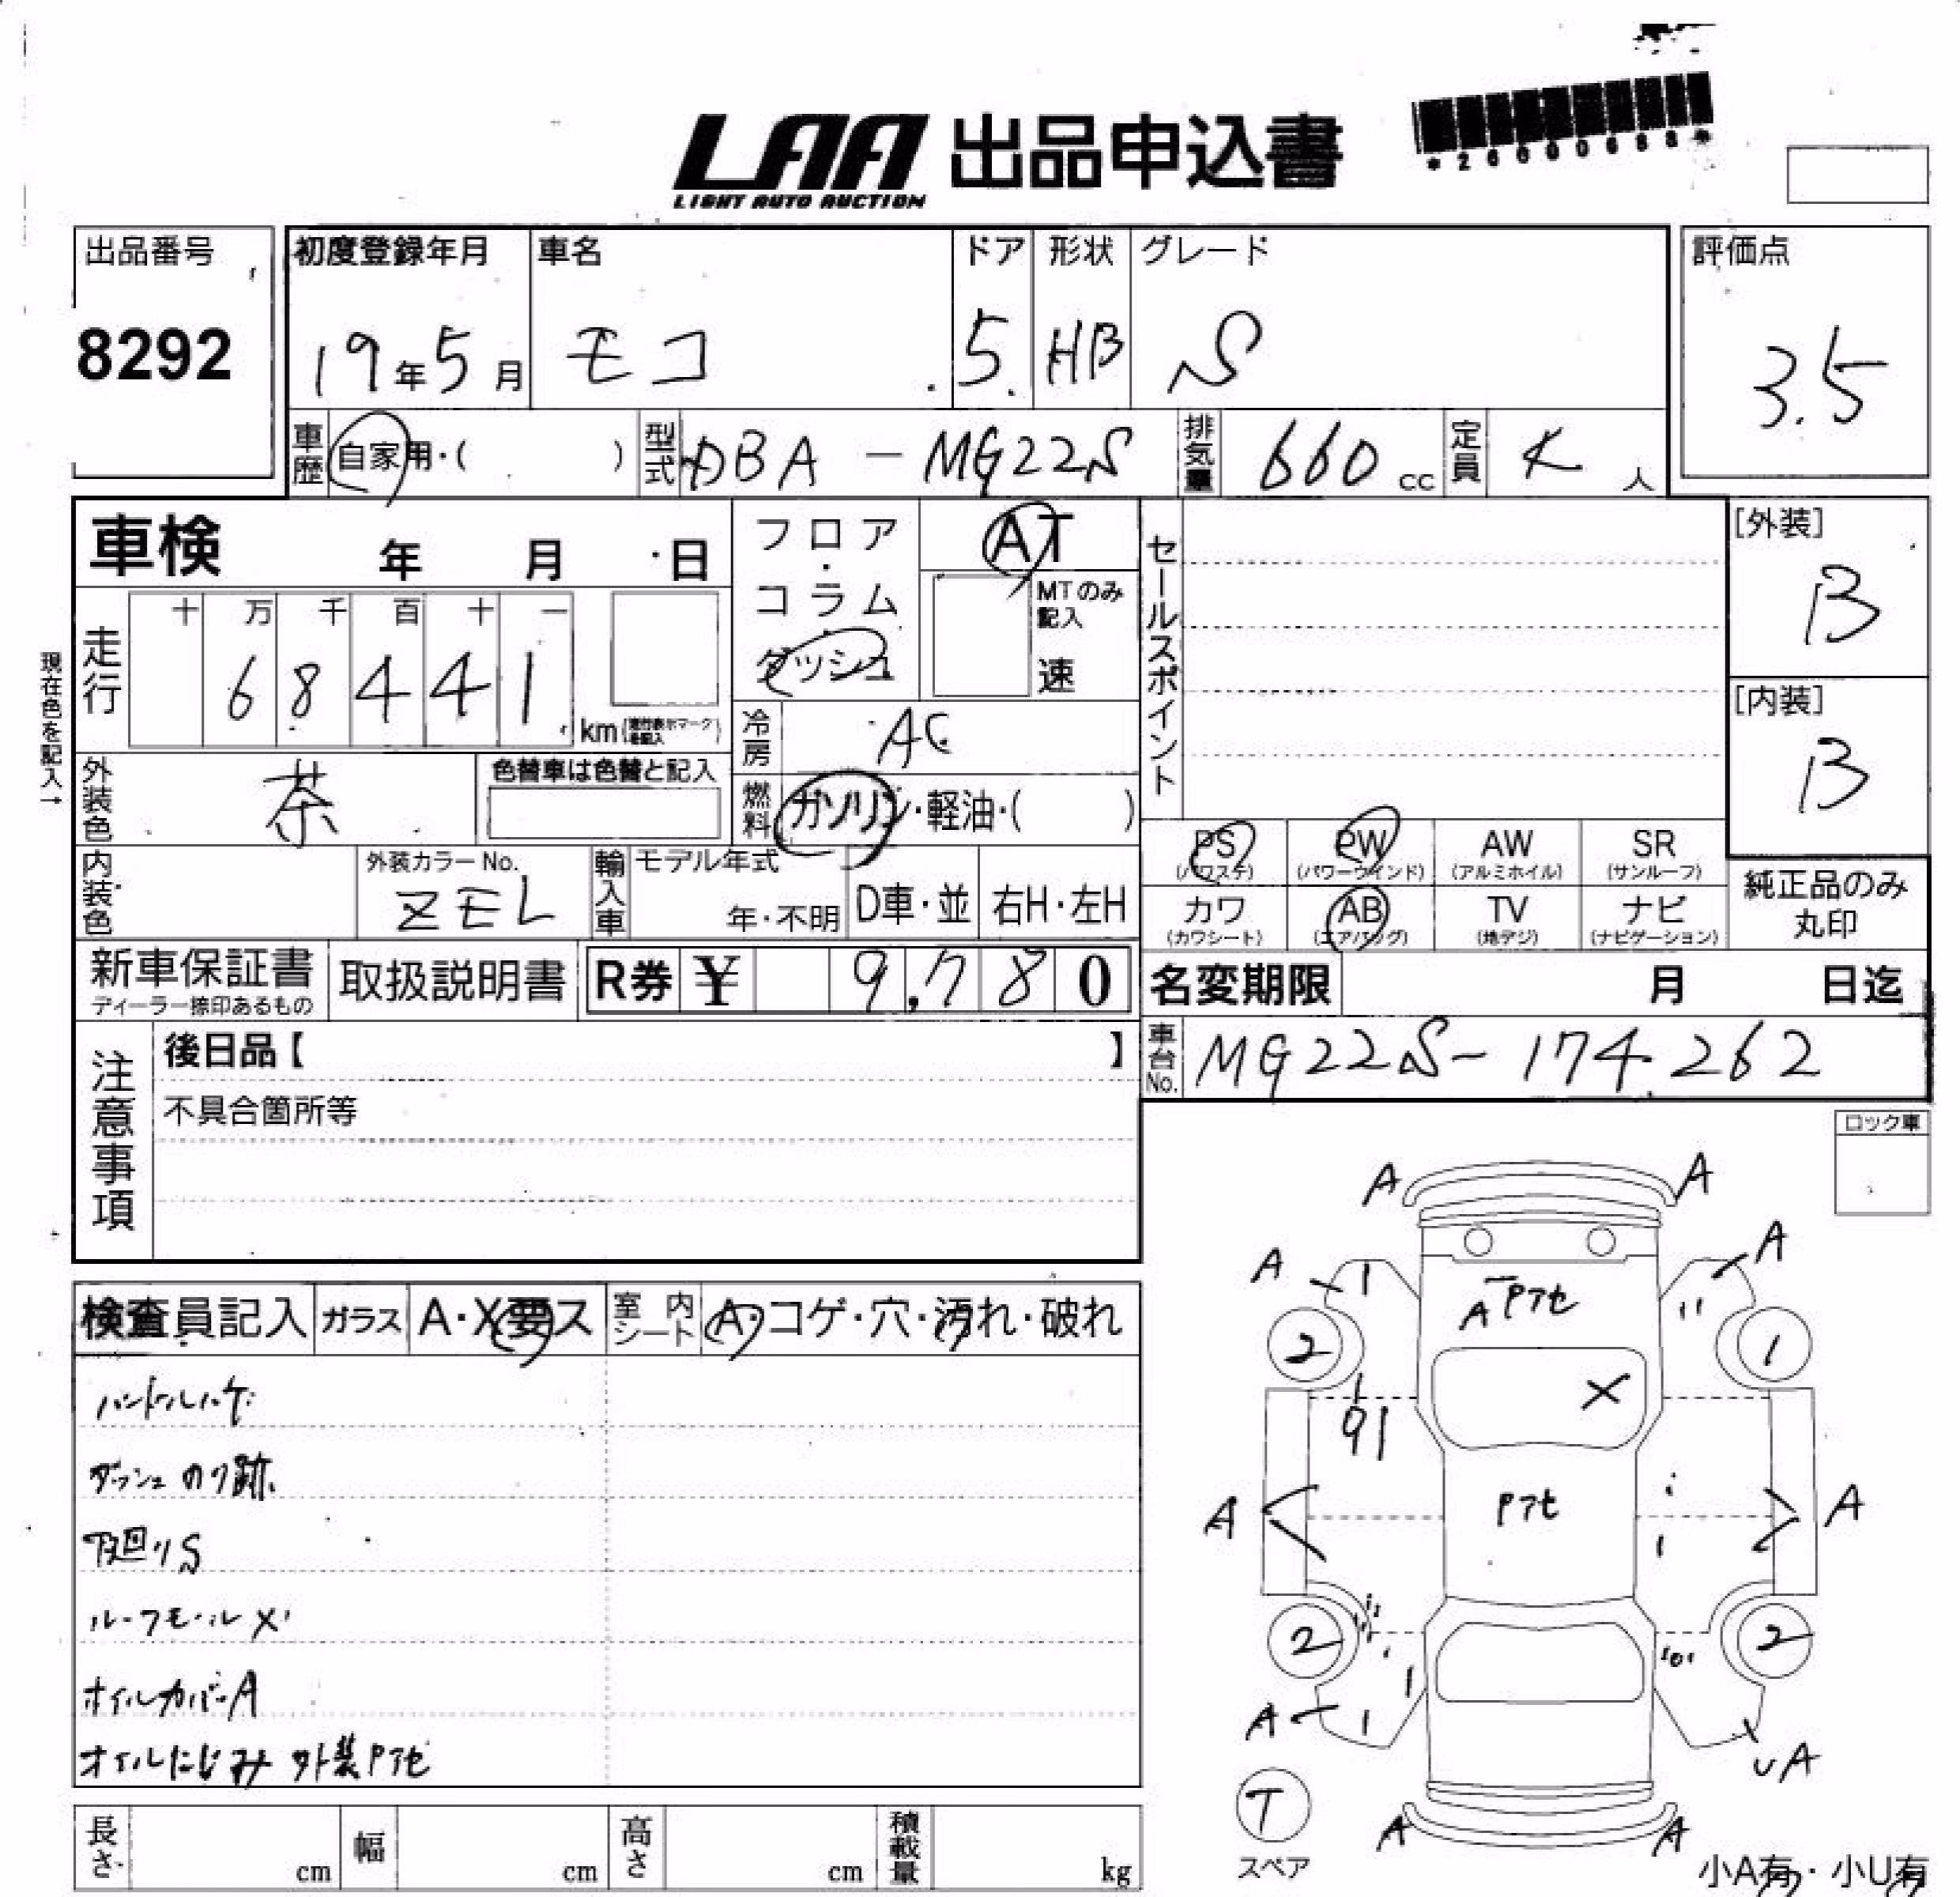 LAA 出品申込書
LIGHT AUTO AUCTION
*26000668*
出品番号
8292
初度登録年月
19年5月
車名
モコ
ドア
5
形状
HB
グレード
S
評価点
3.5
車歴 自家用・( )
型式 DBA-MG22S
排気量 660cc
定員 K人
車検 年 月 日
フロア・コラム・ダッシュ
AT
MTのみ記入
速
セールスポイント
[外装]
B
[内装]
B
現在色を記入→
走行
十 万 千 百 十 一
6 8 4 4 1 km
冷房 AC
燃料 ガソリン・軽油・( )
外装色 茶
色替車は色替と記入
内装色
外装カラーNo.
ZEL
輸入車
モデル年式
年・不明
D車・並
右H・左H
PS PW AW SR
(パワステ) (パワーウインド) (アルミホイル) (サンルーフ)
カワ AB TV ナビ
(カワシート) (エアバッグ) (地デジ) (ナビゲーション)
純正品のみ
丸印
新車保証書
ディーラー捺印あるもの
取扱説明書
R券 ¥ 9,780
名変期限 月 日迄
車台No. MG22S-174262
注意事項
後日品【 】
不具合箇所等
ロック車
検査員記入
ガラス A・X要ス
室内シート A・コゲ・穴・汚れ・破れ
ハンドルハゲ
ダッシュ のり跡
下廻りS
ルーフモールX
ホイルカバーA
オイルにじみ 外装Pアセ
A A
A 1 A
A Pアセ
2 1
X
91
A Pアセ A
2 2
A 1 UA
T
スペア
A A
長さ cm
幅 cm
高さ cm
積載量 kg
小A有・小U有